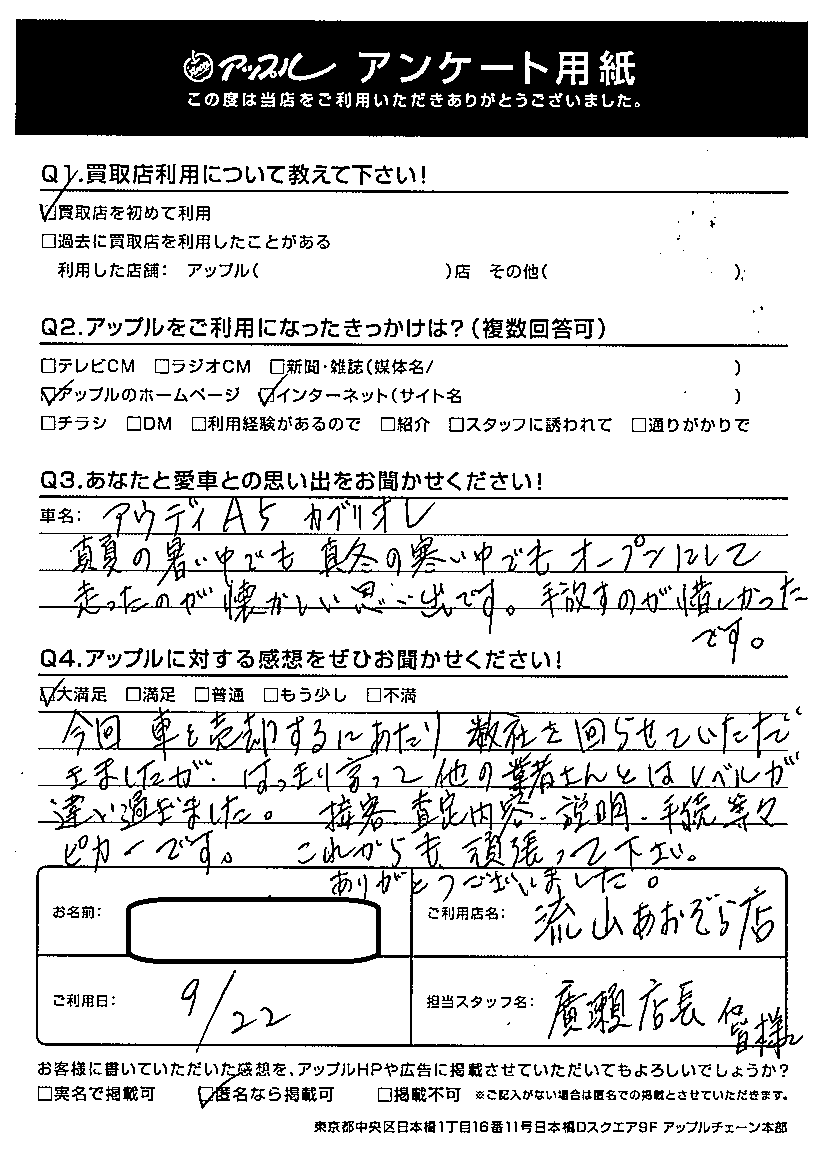 アップル アンケート用紙
この度は当店をご利用いただきありがとうございました。
Q1.買取店利用について教えて下さい!
☑買取店を初めて利用
□過去に買取店を利用したことがある
利用した店舗: アップル( )店 その他( )
Q2.アップルをご利用になったきっかけは?(複数回答可)
□テレビCM □ラジオCM □新聞・雑誌(媒体名/ )
☑アップルのホームページ ☑インターネット(サイト名 )
□チラシ □DM □利用経験があるので □紹介 □スタッフに誘われて □通りがかりで
Q3.あなたと愛車との思い出をお聞かせください!
車名: アウディ A5 カブリオレ
真夏の暑い中でも 真冬の寒い中でも オープンにして
走ったのが 懐かしい 思い出です。 手放すのが惜しかった
です。
Q4.アップルに対する感想をぜひお聞かせください!
☑大満足 □満足 □普通 □もう少し □不満
今回 車を売却するにあたり 数社を回らせていただ
きましたが、はっきり言って 他の業者さんとはレベルが
違い過ぎました。 接客・査定内容・説明・手続 等々
ピカ一です。 これからも 頑張って下さい。
ありがとうございました。
お名前:
ご利用店名: 流山あおぞら店
ご利用日: 9/22
担当スタッフ名: 廣瀬店長 他皆様
お客様に書いていただいた感想を、アップルHPや広告に掲載させていただいてもよろしいでしょうか?
□実名で掲載可 ☑匿名なら掲載可 □掲載不可 ※ご記入がない場合は匿名での掲載とさせていただきます。
東京都中央区日本橋1丁目16番11号日本橋Dスクエア9F アップルチェーン本部